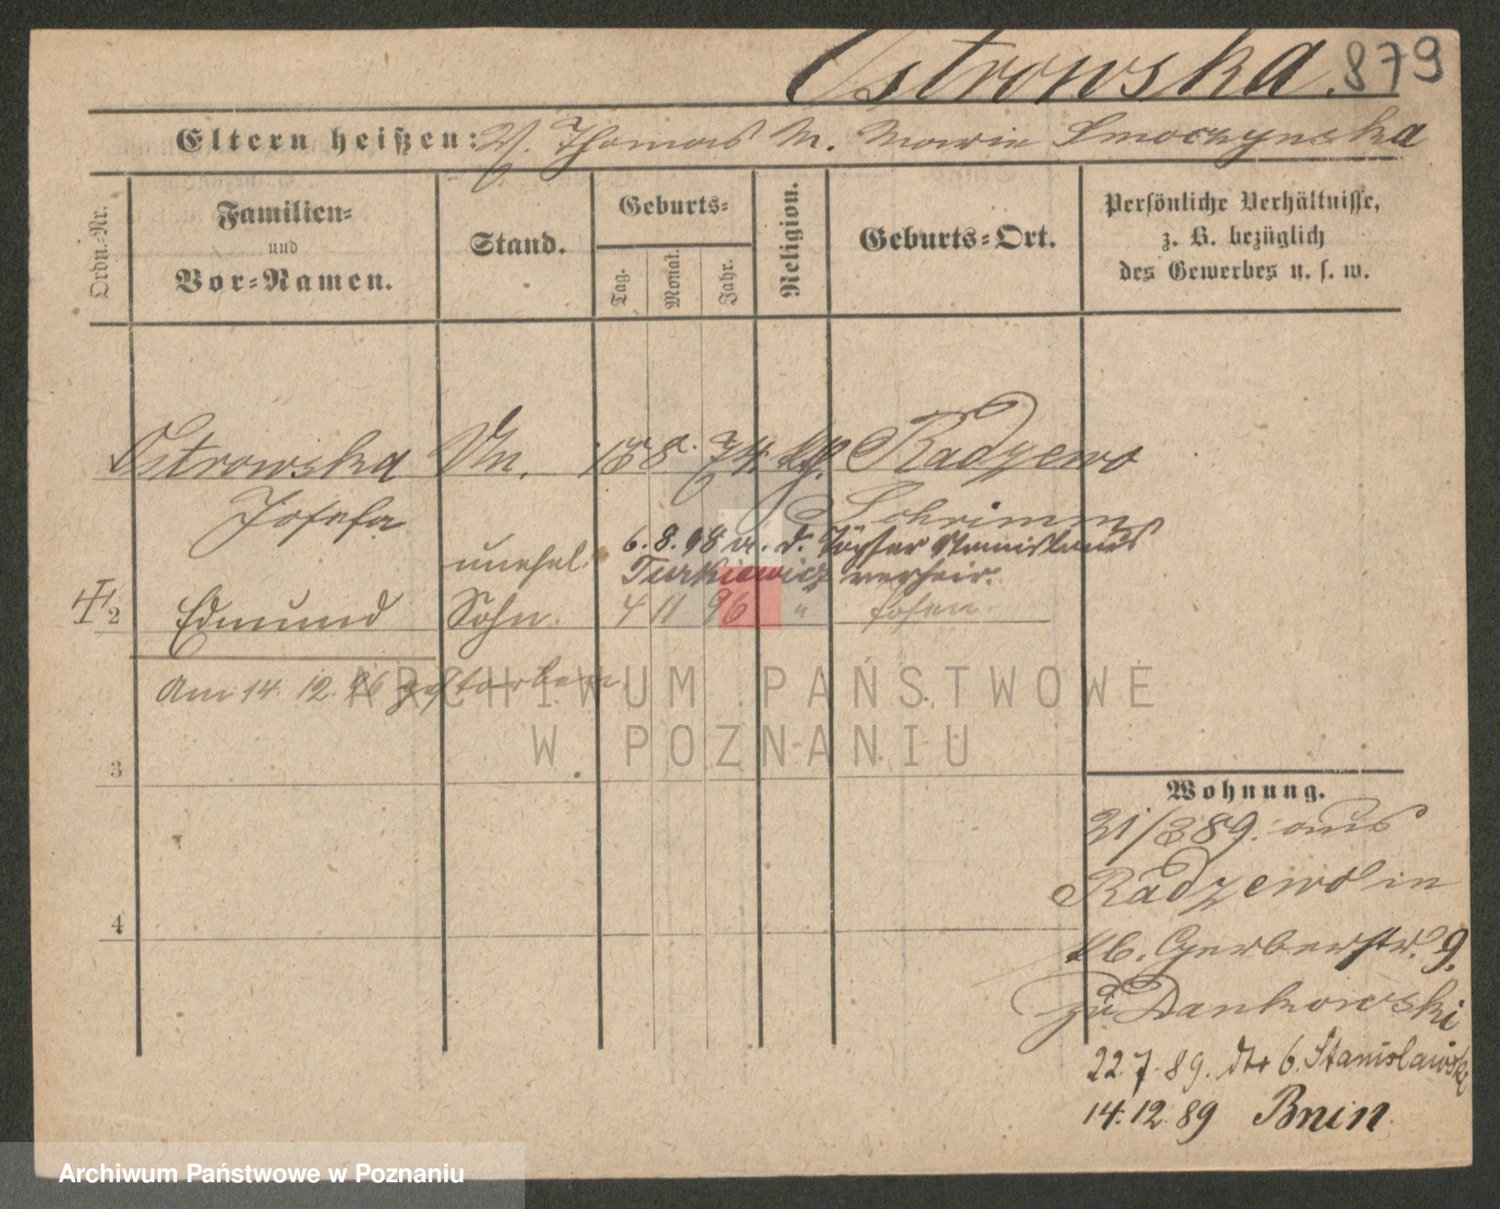 Ostrowska. 879
Eltern heißen: V. Thomas M. Marie Smoczynska
Ordn.-Nr.
Familien-
und
Vor-Namen.
Stand.
Geburts-
Tag.
Monat.
Jahr.
Religion.
Geburts-Ort.
Persönliche Verhältnisse,
z. B. bezüglich
des Gewerbes u. s. w.
Ostrowska Un. 15 8. 74 Radzewo
Josefa Schrimm
6.8.98 m. d. Töpfer Stanislaus
unehel. Turkiewicz verheir.
2 Edmund Sohn. 4 11 96 " Posen.
Am 14. 12. 96 gestorben
3
4
Wohnung.
21/3 89. aus
Radzewo in
Gerberstr. 9.
zu Dankowski
22.7.89. dto 6. Stanislawski
14.12.89 Bnin
ARCHIWUM PAŃSTWOWE
W POZNANIU
Archiwum Państwowe w Poznaniu